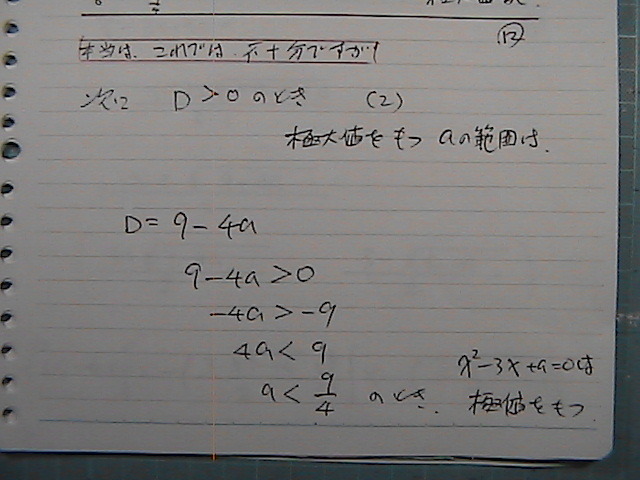 本当は、これでは不十分ですが!
次に D > 0 のとき (2)
極大値をもつ aの範囲は、
D = 9 - 4a
9 - 4a > 0
-4a > -9
4a < 9
a < 9/4 のとき、 x² - 3x + a = 0 は
極値をもつ